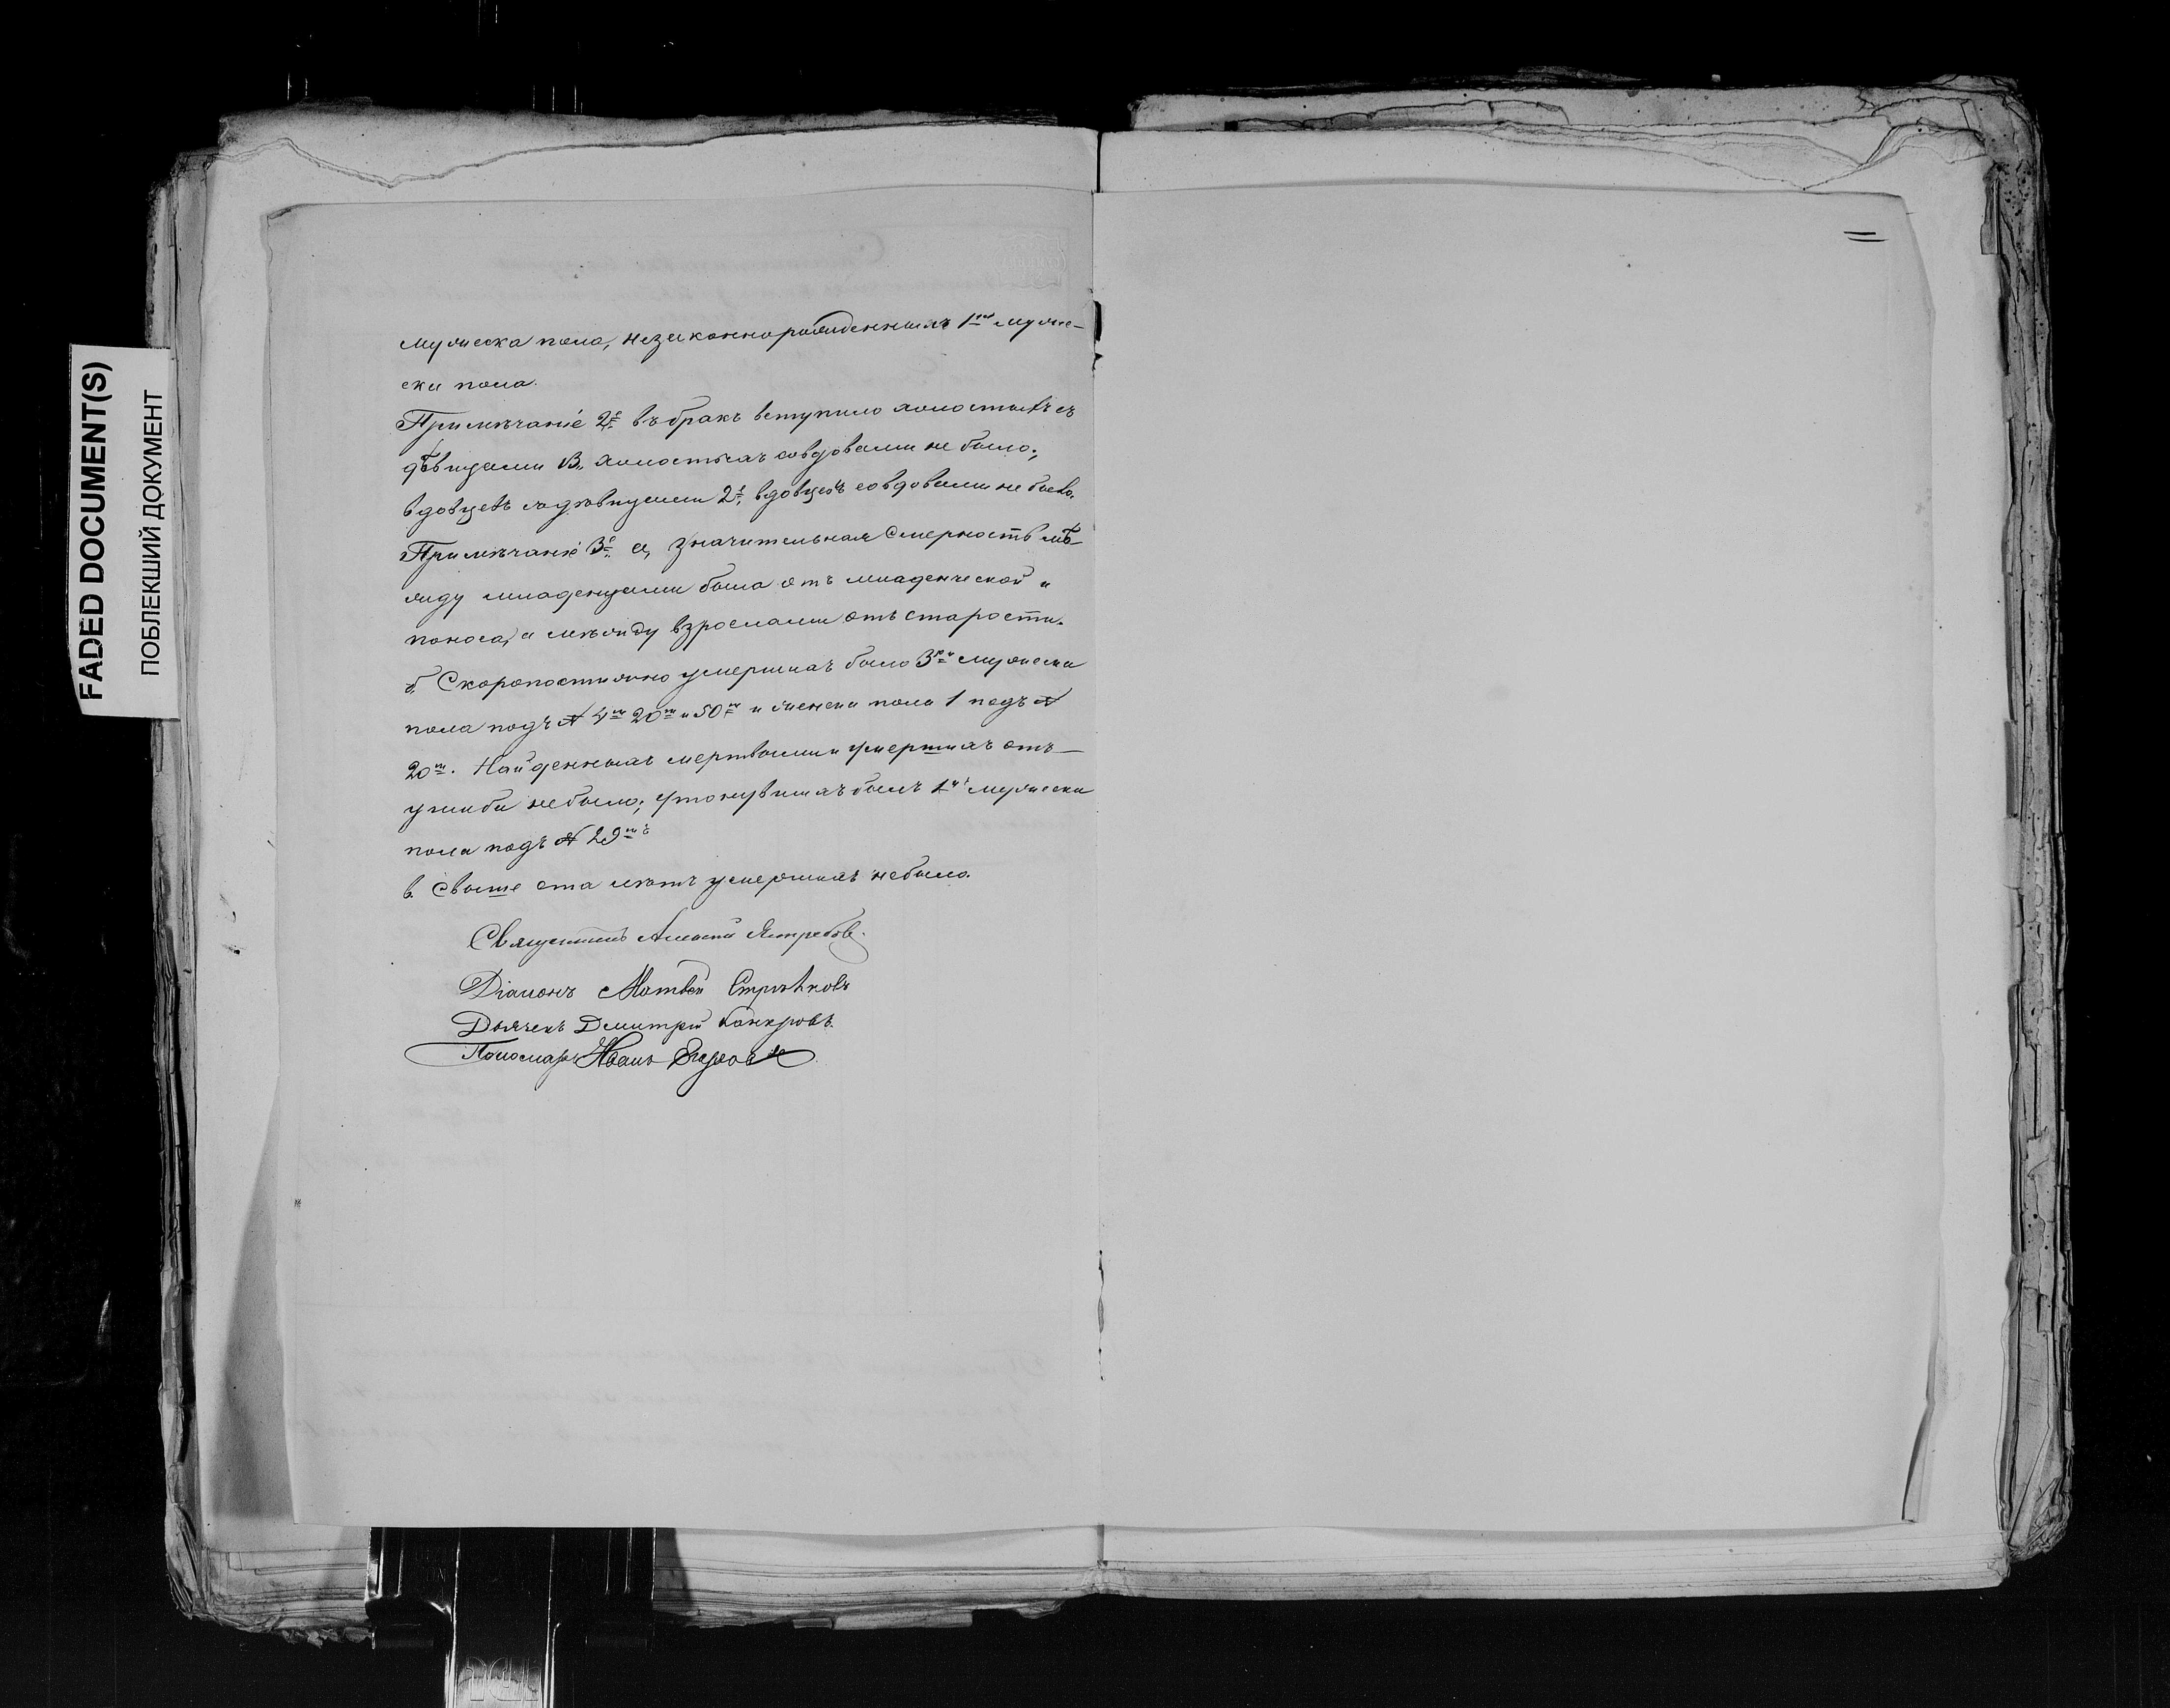 FADED DOCUMENT(S)
ПОБЛЕКШИЙ ДОКУМЕНТ
мужеска пола, незаконнорожденныхъ 1ⁿ муже-
ска пола.
Примѣчаніе 2ᵉ въ бракъ вступило холостыхъ съ
дѣвицами 13, холостыхъ со вдовами не было;
вдовцевъ съ дѣвицами 2ᵉ, вдовцевъ со вдовами не было.
Примѣчаніе 3ᵉ а, Значительная смерность мѣ-
жду младенцами была отъ младенческой и
поноса, а между взрослами отъ старости.
б. Скоропостижно умершихъ было 3ᵉ мужеска
пола подъ № 4ᵐ 20ᵐ и 50ᵐ и женска пола 1 подъ №
20ᵐ. Найденныхъ мертвыми и умершихъ отъ
ушиба не было; утонувшихъ былъ 1ⁿ мужеска
пола подъ № 29ᵐъ
в. Свыше ста лѣтъ умершихъ небыло.
Священникъ Алексій Ястребовъ.
Діаконъ Матвей Стрѣлковъ
Дьячекъ Дмитрій
Пономарь Иванъ